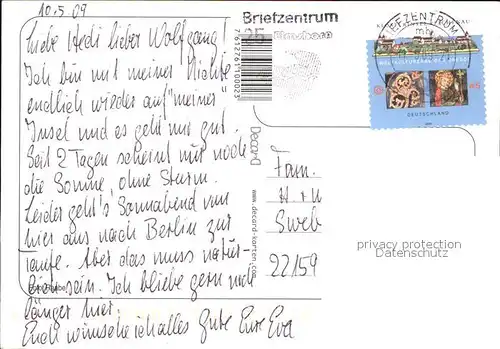 10.5.09
Liebe Hedi lieber Wolfgang!
Ich bin mit meiner Nichte
endlich wieder auf "meiner"
Insel und es geht mir gut.
Seit 2 Tagen scheint nur noch
die Sonne, ohne Sturm.
Leider geht's Sonnabend von
hier aus nach Berlin zur
Aber das muss natür-
lich sein. Ich bliebe gern noch
länger hier.
Euch wünsche ich alles Gute Eure Eva
Briefzentrum
25
7612767100023
Decard
www.decard-karten.com
BRIEFZENTRUM
DEUTSCHLAND
Fam.
H + W
Sweb
22159
privacy protection
Datenschutz